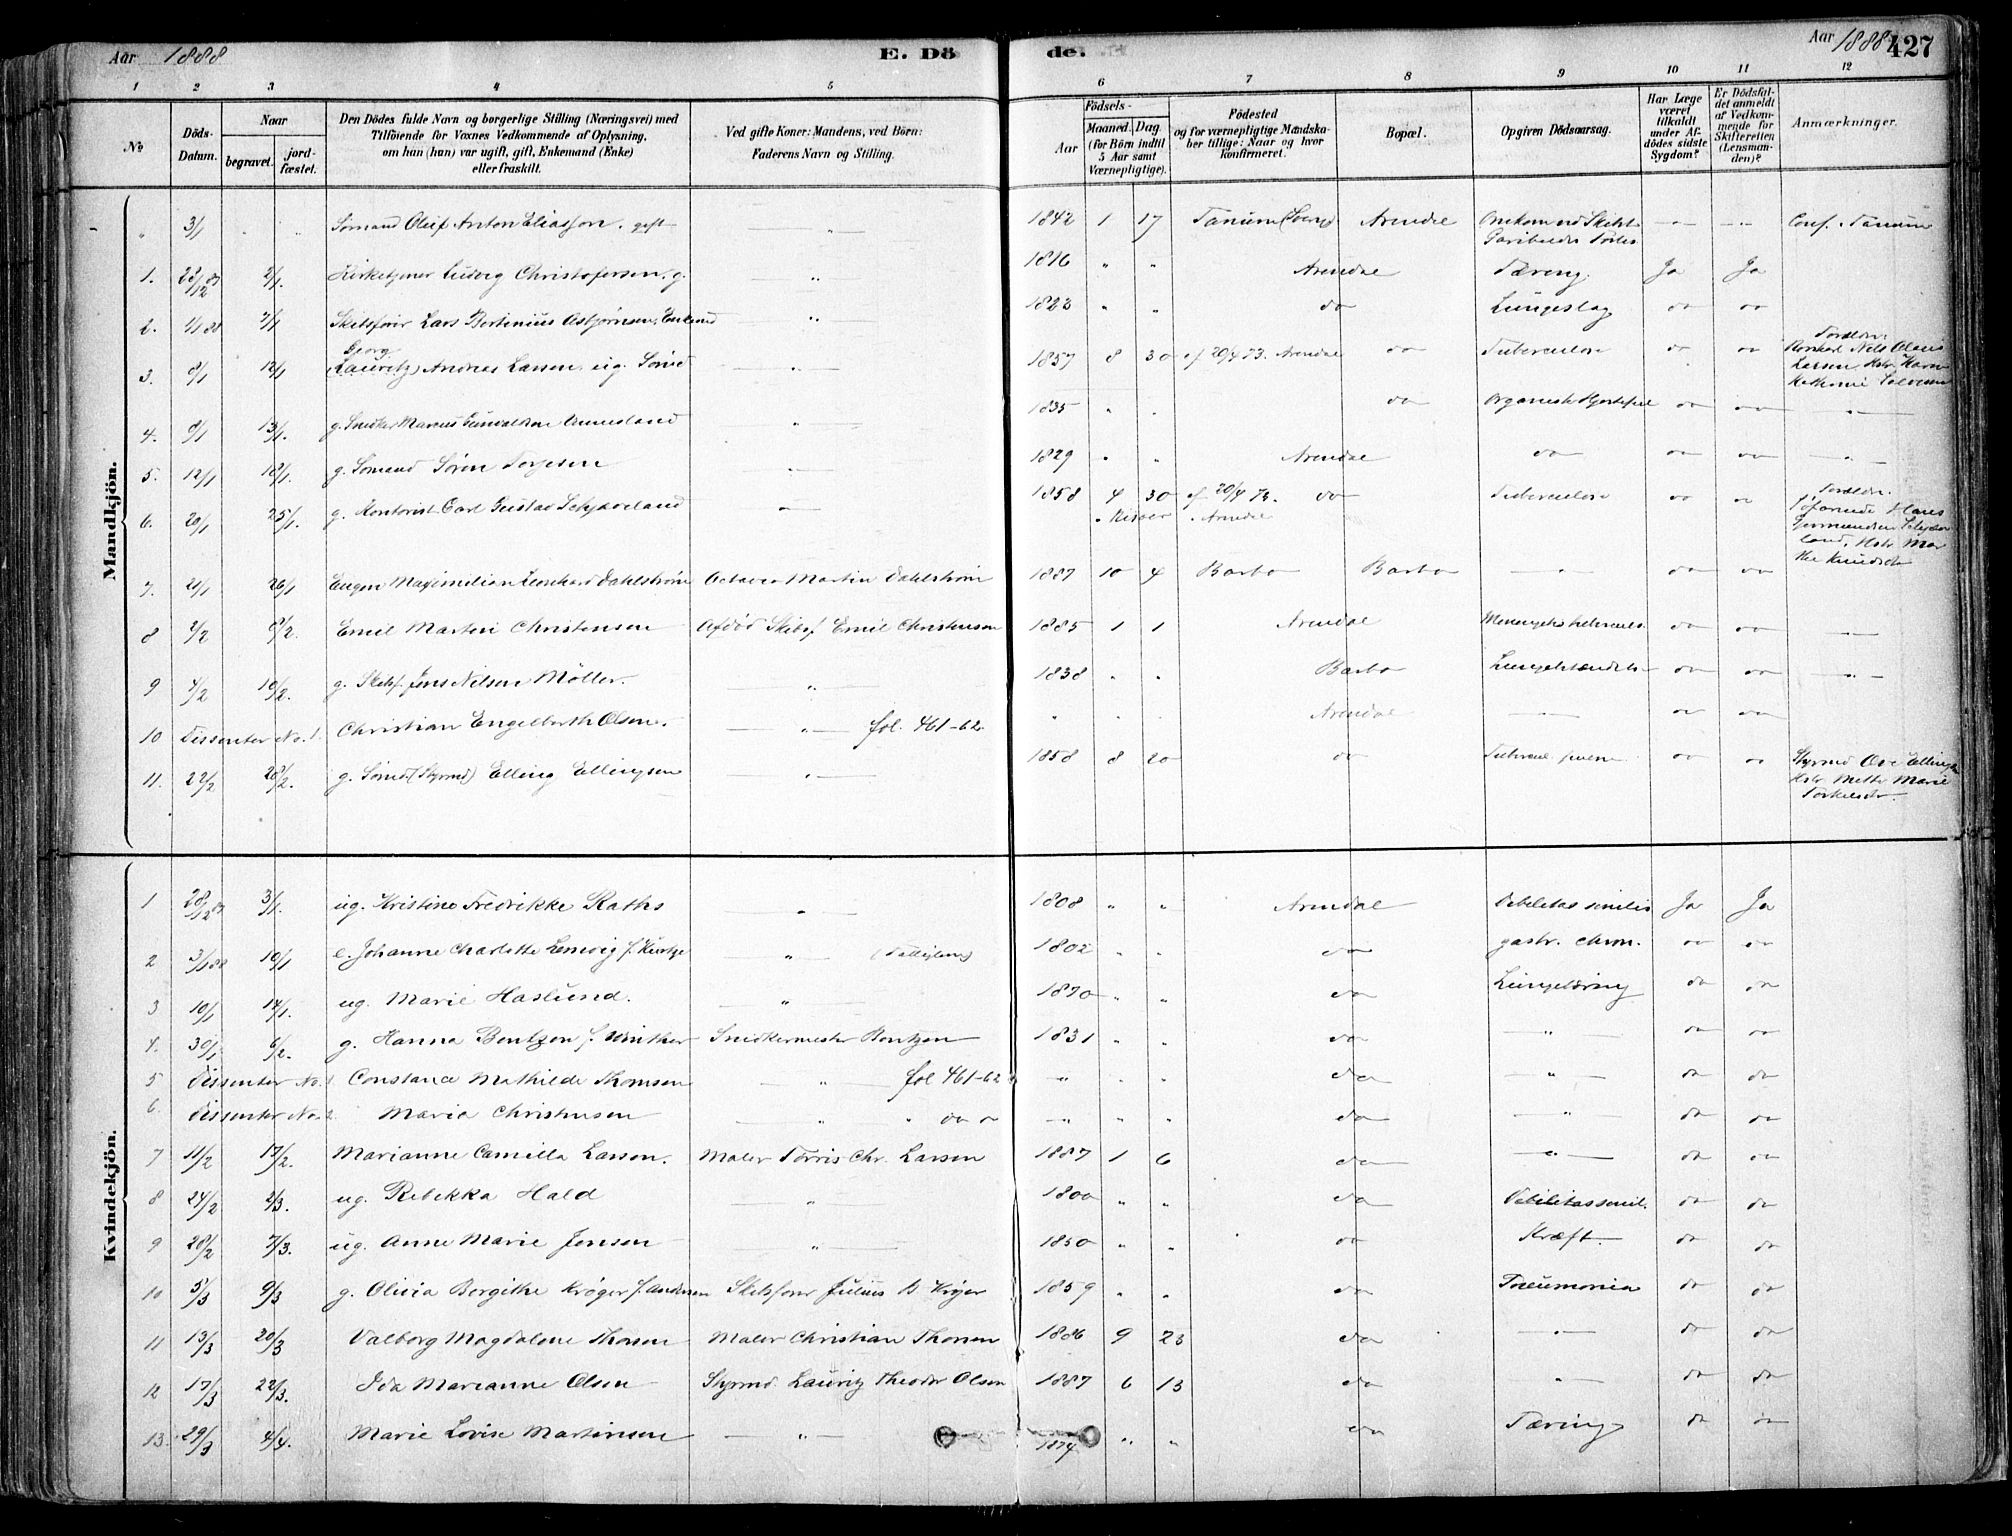 Aar 1888 E. Dö de. Aar 1888 427
1 2 3 4 5 6 7 8 9 10 11 12
No
Döds-Datum.
Naar
begravet.
jord-fæstet.
Den Dödes fulde Navn og borgerlige Stilling (Næringsvei) med
Tilföiende for Voxnes Vedkommende af Oplysning,
om han (hun) var ugift, gift, Enkemand (Enke)
eller fraskilt.
Ved gifte Koner: Mandens, ved Börn:
Faderens Navn og Stilling.
Födsels-
Aar
Maaned. Dag.
(for Börn indtil
5 Aar samt
Værnepligtige).
Födested
og for værnepligtige Mandska-
ber tillige: Naar og hvor
konfirmeret.
Bopæl.
Opgiven Dödsaarsag.
Har Læge
været
tilkaldt
under Af-
dödes sidste
Sygdom?
Er Dödsfal-
det anmeldt
af Vedkom-
mende for
Skifteretten
(Lensman-
den)?
Anmærkninger.
Mandkjön.
" 3/1 " " Sömand Oluf Anton Eliassen. gift " 1842 1 17 Tanum Arendal Conf. i Tanum
1. 28/12 87 2/1. Kirketjener Ludvig Christofersen. g. " 1816 " " Arendal Tæring Ja Ja
2. 1/1 88 7/1 Skibsförer Lars Bertinius Asbjörnsen, Enkemd " 1823 " " do Lungeslag do do
3. 8/1 12/1 Georg (Lauritz) Andreas Larsen, ug. Sömd " 1857 8 30 cf 20/4 73. Arendal do Tuberculose do do Forældre: Nils Olaus Larsen, Hstr
4. 9/1 13/1. g. Snedker Marcus Gunvaldsen Aanesland " 1835 " " do Organisk Hjertefeil do do "
5. 12/1 18/1. g. Sömand Sören Terjesen " 1829 " " Arendal do do do "
6. 20/1 25/1. g. Kontorist Carl Gustav " 1858 4 30 cf 20/4 73. Arendal do Tuberculose do do Forældre:
7. 21/1 26/1 Eugen Maximilian Leonhard Dahlström Octavius Martin Dahlström 1887 10 4 Barbo Barbo " do do
8 2/2 8/2. Emil Martin Christensen Afdöd Skibsf. Emil Christensen 1885 1 1 Arendal do do
9 4/2 10/2. g. Skibsf. Jens Nilsen Möller. " 1838 " " Barbo do do "
10 Dissenter No. 1. Christian Engelbarth Olsen. " fol. 461-62 " " " Arendal do do
11. 22/2 28/2. g. Sömd (Styrmd) Elling Ellingsen " 1858 8 20 do Tubercul. pulm do do Styrmd Ellingsen Hstr Mette Marie Torkelsdr.
Kvindekjön.
1 28/12 87 3/1. ug. Kristine Fredrikke Raths " 1808 " " Arendal Debilitas senilis Ja Ja
2 3/1 88 10/1 e. Johanne Charlotte Lemvig f. " 1802 " " do gastr. chron. do do
3 10/1 14/1. ug. Marie Haslund. " 1870 " " do Lungetæring do do
4. 30/1 6/2. g. Hanna Bentzen f. Winther Snedkermester Bentzen 1831 " " do " do do
5 Dissenter No. 1. Constance Mathilde Thomsen " fol 461-62 " " " do " do do
6. Dissenter No. 2. Maria Christensen " do " " " do " do do
7 11/2 17/2. Marianne Camilla Larsen. Maler Torris Chr. Larsen 1887 1 6 do " do do
8 24/2 2/3. ug. Rebekka Hald " 1800 " " do Debilitas senil. do do
9 28/2 7/3. ug. Anne Marie Jensen " 1850 " " do Kræft. do do
10 5/3 9/3 g. Olivia Bergithe Kröger f. Andersen Skibsförer Julius B Kröger 1859 " " do Pneumonia do do
11 13/3 20/3 Valborg Magdalene Thorsen Maler Christian Thorsen 1886 9 23 do " do do
12 17/3 22/3. Ida Marianne Olsen Styrmd. Lauritz Theodor Olsen 1887 6 13 do " do do
13. 29/3 4/4. Marie Lovise Martinsen " 1874 " " do Tæring do do